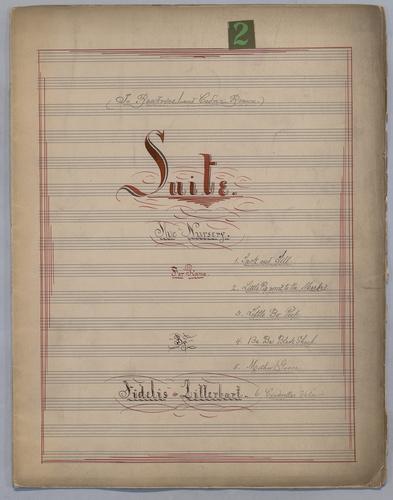 2
Suite.
The Nursery.
For Piano.
1. Jack and Jill
2. Little Pig went to the Market
3. Little Bo Peep
By
4. Ba Ba Black Sheep
5. Mother Goose
Fidelis Zitterbart.
6.